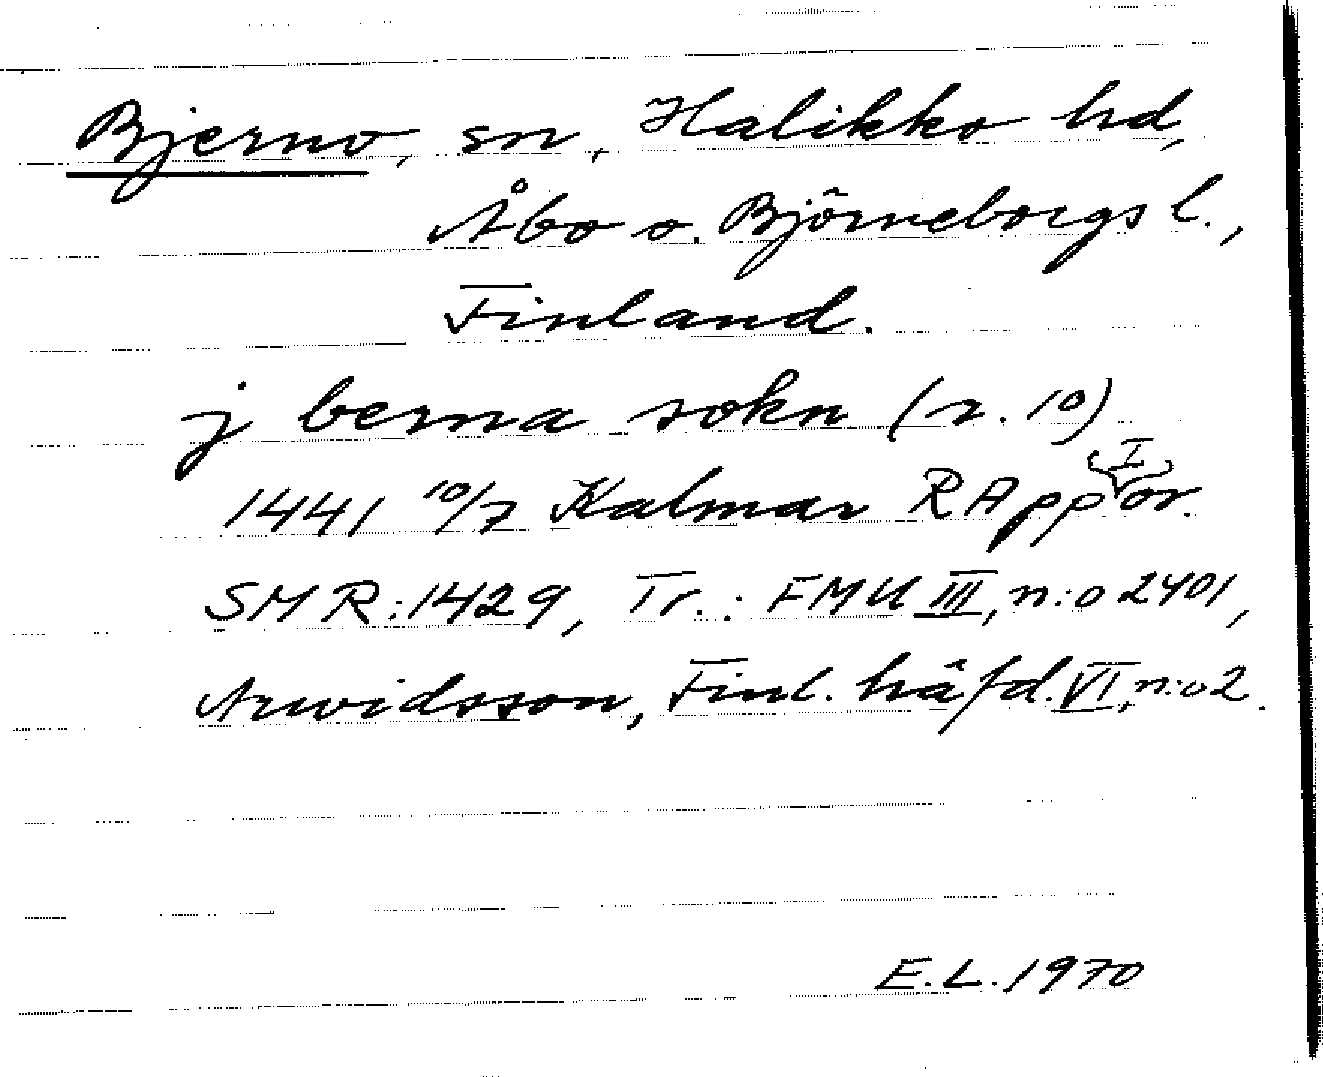 Bjerno, sn, Halikko hd,
Åbo o. Björneborgs l.,
Finland.
j berna sokn (r. 10)
1441 10/7 Kalmar RApp I or.
SMR: 1429, Tr.: FMU III, n:o 2401,
Arwidsson, Finl. häfd. VI, n:o 2.
E.L. 1970